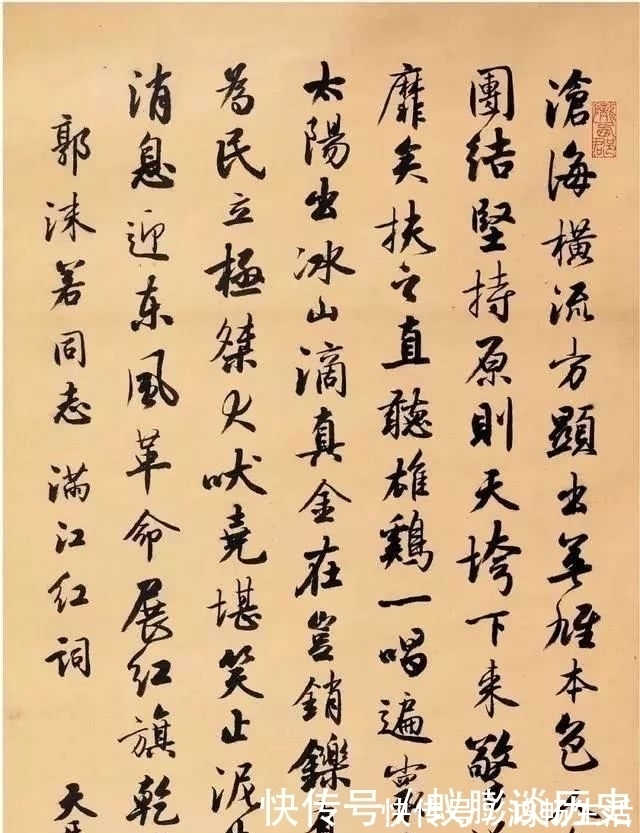 滄海橫流方顯出英雄本色
團結堅持原則天垮下來
靡矣扶之直聽雄鷄一唱遍寰
太陽出冰山滴真金在豈銷鑠
為民立極桀犬吠堯堪笑止泥
消息迎东風革命展紅旗乾
郭沫若同志滿江紅詞
天
快传号/
快传号/